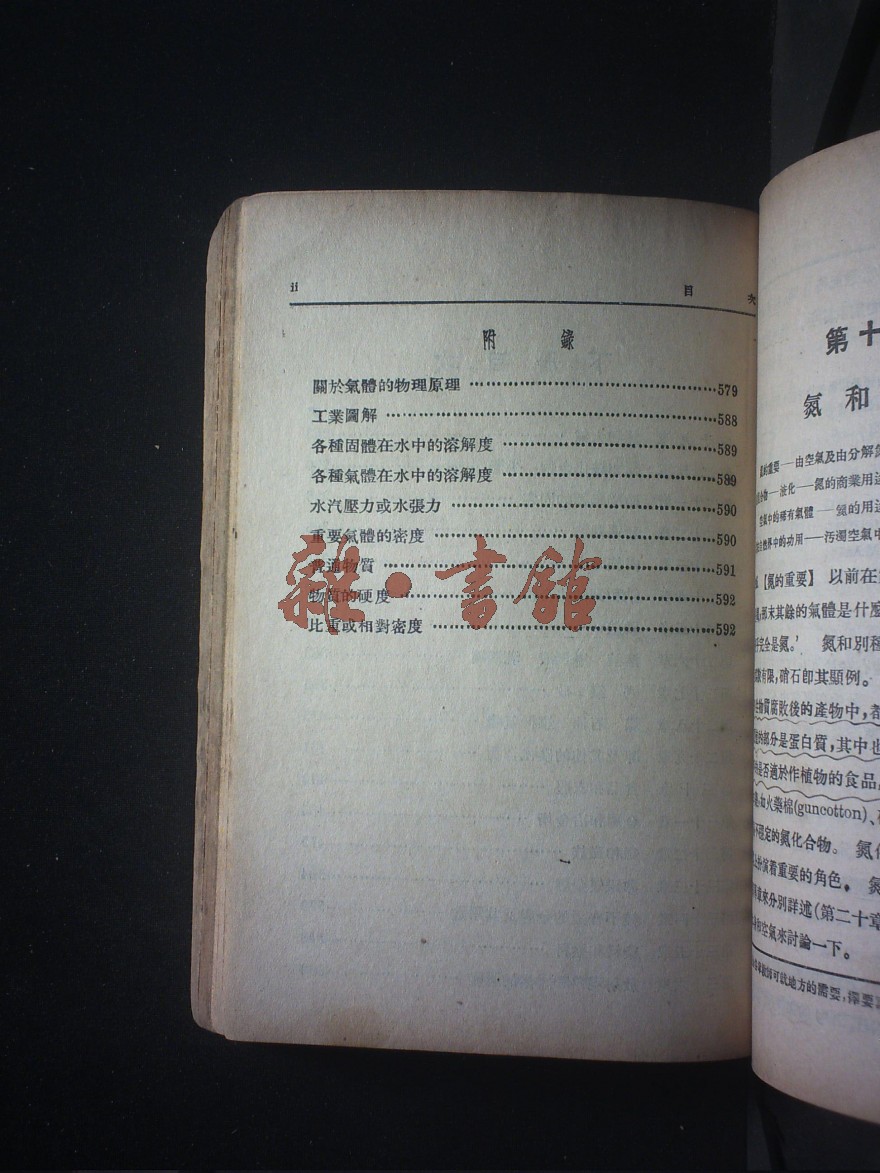 ii
目 次
附 錄
關於氣體的物理原理 579
工業圖解 588
各種固體在水中的溶解度 589
各種氣體在水中的溶解度 589
水汽壓力或水張力 590
重要氣體的密度 590
普通物質 591
物質的硬度 592
比重或相對密度 592
雜·書館
第十
氮 和
的重要——由空氣及由分解氮
液化——氮的商業用途
空氣中的稀有氣體——氬的用途
中的功用——汚濁空氣中
【氮的重要】 以前在
那末其餘的氣體是什麼
完全是氮。 氮和別種
有限,硝石卽其顯例。
物質腐敗後的產物中,都
部分是蛋白質,其中也
是否適於作植物的食品,
如火藥棉(guncotton)、
不穩定的氮化合物。 氮
扮演着重要的角色。 氮
章來分別詳述(第二十章
和空氣來討論一下。
可就地方的需要,擇要